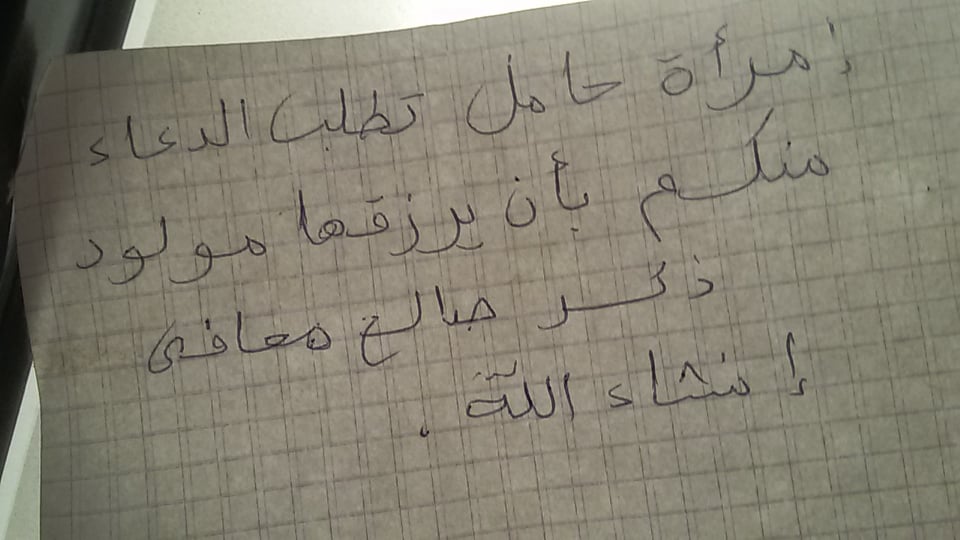 إمرأة حامل تطلب الدعاء
منكم بأن يرزقها مولود
ذكر صالح معافى
إنشاء الله .